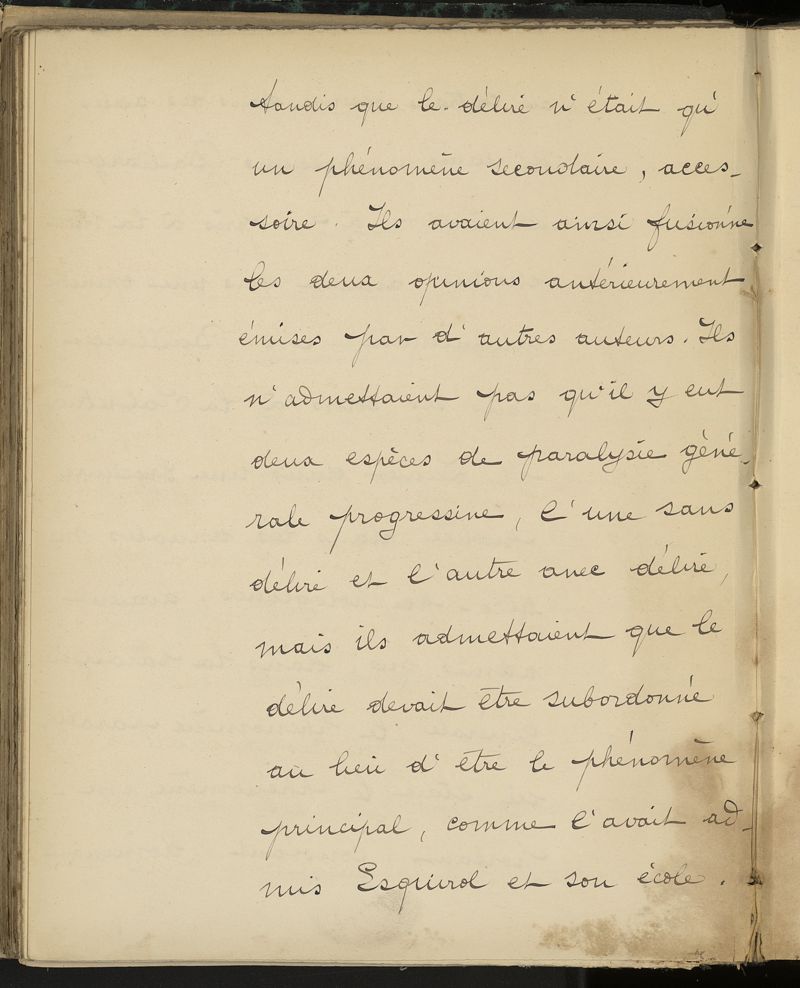 tandis que le délire n'était qu'
un phénomène secondaire, acces-
soire. Ils avaient ainsi fusionné
les deux opinions antérieurement
émises par d'autres auteurs. Ils
n'admettaient pas qu'il y eut
deux espèces de paralysie géné-
rale progressive, l'une sans
délire et l'autre avec délire,
mais ils admettaient que le
délire devait être subordonné
au lieu d'être le phénomène
principal, comme l'avait ad-
mis Esquirol et son école.